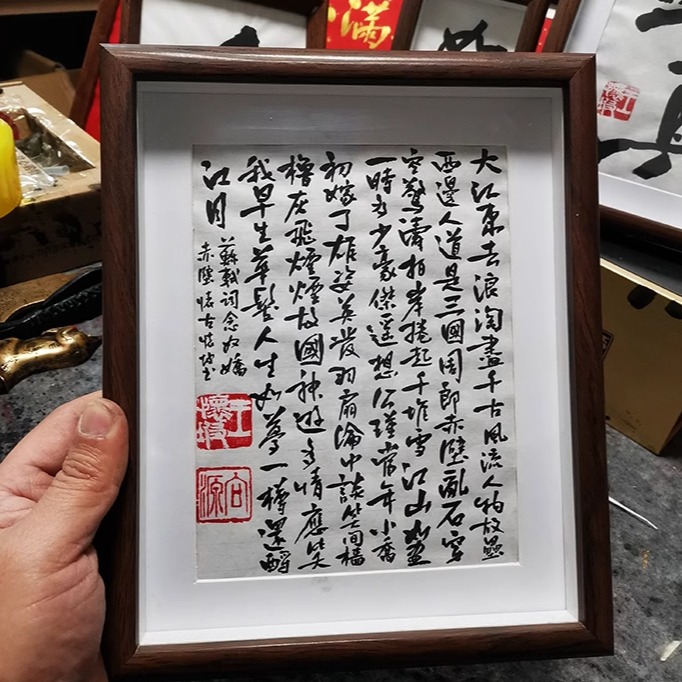 大江東去浪淘盡千古風流人物故壘
西邊人道是三國周郎赤壁亂石穿
空驚濤拍岸捲起千堆雪江山如畫
一時多少豪傑遙想公瑾當年小喬
初嫁了雄姿英發羽扇綸巾談笑間檣
櫓灰飛煙煙故國神遊多情應笑
我早生華髮人生如夢一樽還酹
江月
蘇軾詞念奴嬌
赤壁懷古
滿